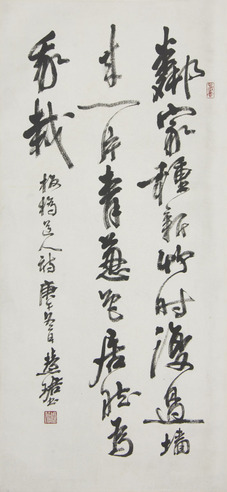 鄰家種新竹时復過墙
来一片青蔥色居然为
我栽
板橋道人诗庚午冬日慧珺